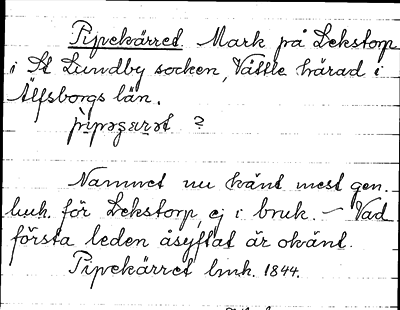 Pipekärret. Mark på Lekstorp
i St Lundby socken, Vättle härad i
Älfsborgs län.
?
Namnet nu känt mest gen.
lmk. för Lekstorp, ej i bruk. – Vad
första leden åsyftat är okänt.
Pipekärret lmk. 1844.